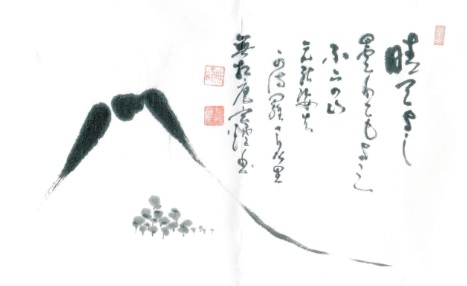 晴てよし
曇りてもよし
不二の山
元の姿は
かはらさりけり
無相庵